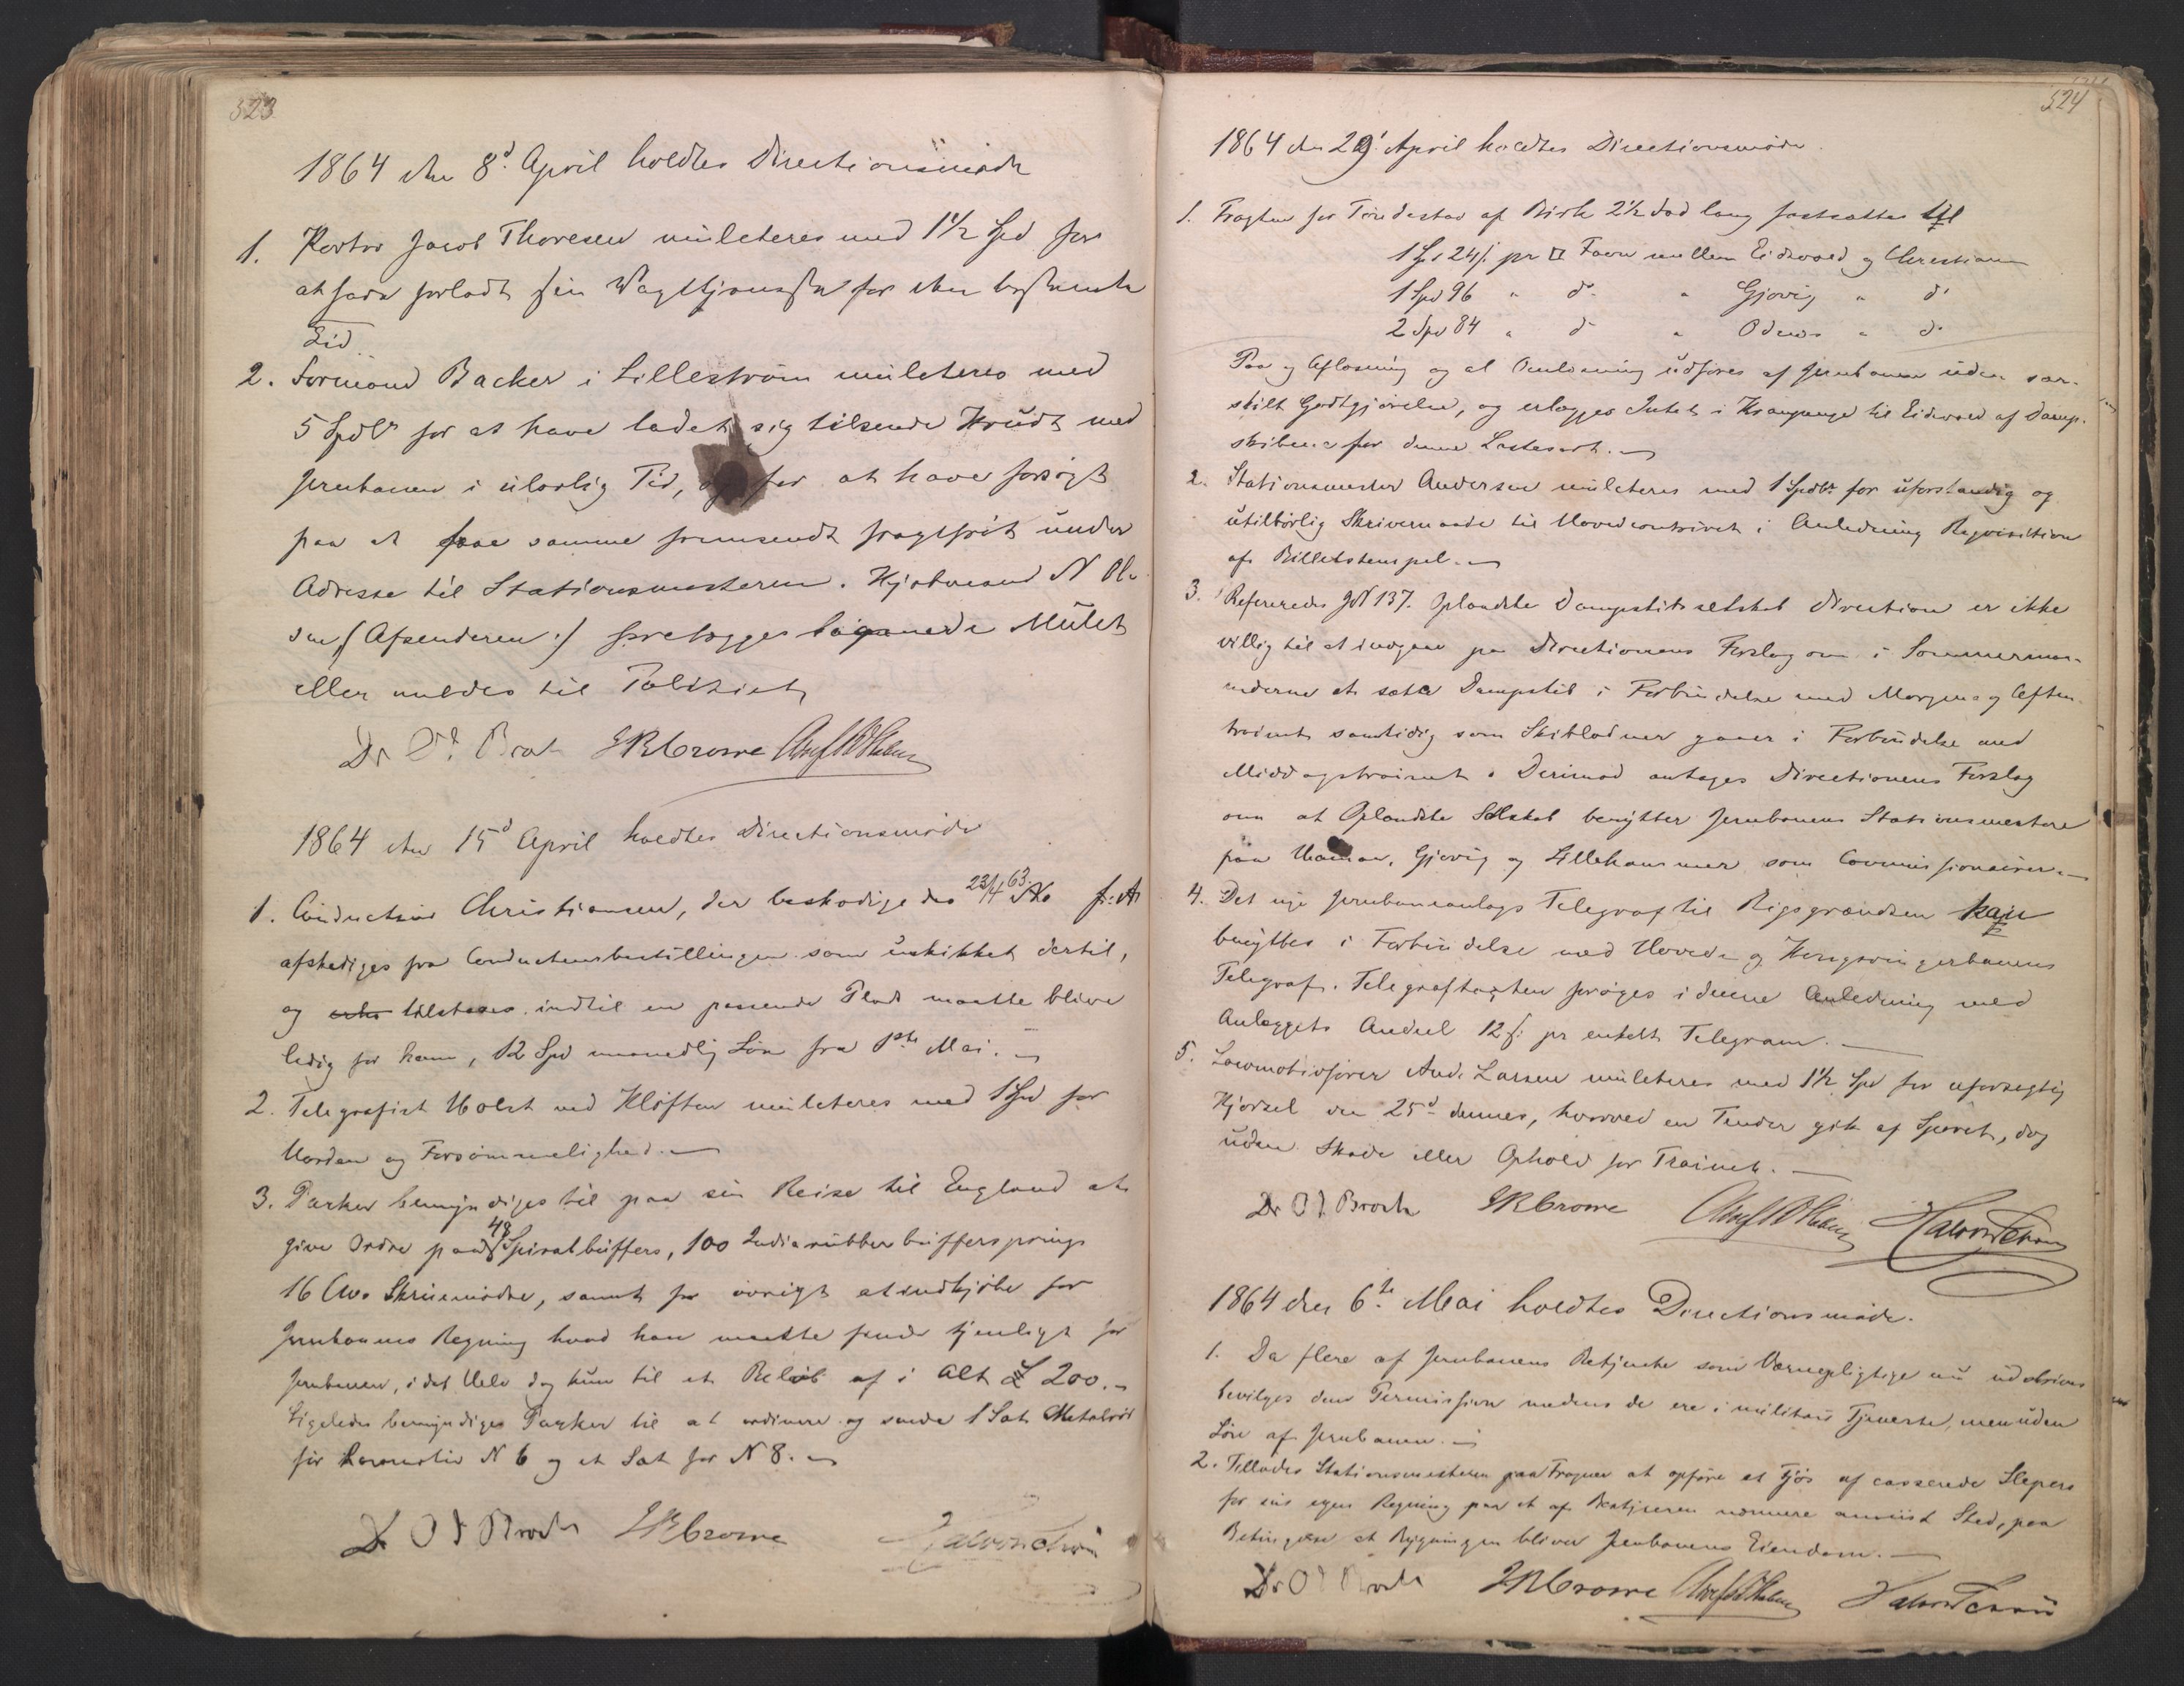 323
1864 den 8d April holdtes Directionsmöde
1. Portør Jacob Thoresen mulcteres med 1 1/2 Spd for
at have forladt sin Vagttjeneste før den bestemte
Tid
2. Formand Backer i Lilleström mulcteres med
5 Spdlr for at have ladet sig tilsende Krudt med
Jernbanen i ulovlig Tid, og for at have forsøgt
paa at faae samme fremsendt fragtfrit under
Adresse til Stationsmesteren. Kjøbmand N Ol-
sen /: Afsenderen :/ forelægges lignende Mulct
eller meldes til Politiet
Dr O J Broch JRCrowe
1864 den 15d April holdtes Directionsmöde
1. Conducteur Christiansen, der beskadigedes 23/4 63
afskediges fra Conducteurbestillingen som uskikket dertil,
og tilstaaes indtil en passende Plads maatte blive
ledig for ham, 12 Spd maanedlig Løn fra 1ste Mai.
2. Telegrafist Holst ved Kløften mulcteres med 1 Spd for
Uorden og Forsømmelighed.
3. Parker bemyndiges til paa sin Reise til England at
give Ordre paa 48 Spiralbuffers, 100 Indiarubber buffersprings
16 Cwo Skruemødre, samt for øvrigt at indkjøbe for
Jernbanens Regning hvad han maatte finde tjenligt for
Jernbanen, i det Hele dog kun til et Beløb af i Alt £ 200.
Ligeledes bemyndiges Parker til at ordinere og sende 1 Sat Metalrör
for Locomotiv N 6 og et Sat for N 8.
Dr O J Broch JRCrowe
324
1864 den 29' April holdtes Directionsmöde
1. Fragten for Töndestav af Birk 2 1/2 Fod lang fastsættes til
1 Spd 24 s. pr □ Favn mellem Eidsvold og Christiania
1 Spd 96 " do " Gjøvig " do
2 Spd 84 " do " Odnes " do
Paa og Aflæsning og al Omlæsning udføres af Jernbanen uden sær-
skilt Godtgjørelse, og erlægges Intet i Kranpenge til Eidsvold af Damp-
skibene for denne Lastesort.
2. Stationsmester Andersen mulcteres med 1 Spdlr for uforstandig og
utilbörlig Skrivemaade til Hovedcontoiret i Anledning Reqvisition
af Billetstempel.
3. Refereredes JN 137. Oplandske Dampskibsselskab direction er ikke
villig til at indgaae paa Directionens Forslag om i Sommermaa-
nederne at sætte Dampskib i Forbindelse med Morgen og Aften
trainet samtidig som Skibladner gaaer i Forbindelse med
Middagstrainet. Derimod antages Directionens Forslag
om at Oplandske Selskab benytter Jernbanens Stationsmestere
paa Hamar, Gjøvig og Lillehammer som Commissionairer.
4. Det nye Jernbaneanlægs Telegraf til Rigsgrændsen kan
benyttes i Forbindelse med Hoved- og Kongsvingerbanens
Telegraf. Telegraftaxten forøges i denne Anledning med
Anlæggets Andeel 12 s. pr enkelt Telegram.
5. Locomotivfører And. Larsen mulcteres med 1 1/2 Spd for uforsigtig
Kjørsel den 25d dennes, hvorved en Tender gik af Sporet, dog
uden Skade eller Ophold for Trainet.
Dr O J Broch JRCrowe
1864 den 6te Mai holdtes Directionsmöde.
1. Da flere af Jernbanens Betjente som Værnepligtige nu udskrives
bevilges dem Permission medens de ere i militair Tjeneste, men uden
Løn af Jernbanen.
2. Tillodes Stationsmesteren paa Frogner at opføre et Fjös af casserede Slepers
for sin egen Regning paa et af Bestyreren nærmere anviist Sted, paa
Betingelse at Bygningen bliver Jernbanens Eiendom.
Dr O J Broch JRCrowe